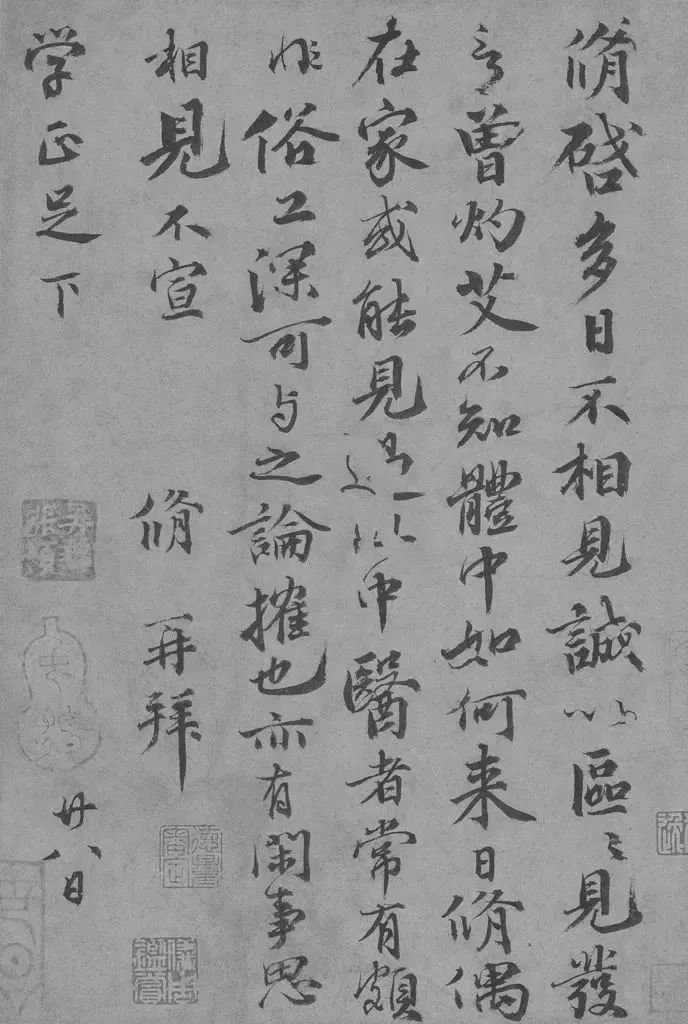 脩啓多日不相見誠以區〻見發
言曾灼艾不知體中如何来日脩偶
在家或能見過此中醫者常有頗
非俗工深可与之論搉也亦有閑事思
相見不宣 脩再拜
学正足下 廿八日